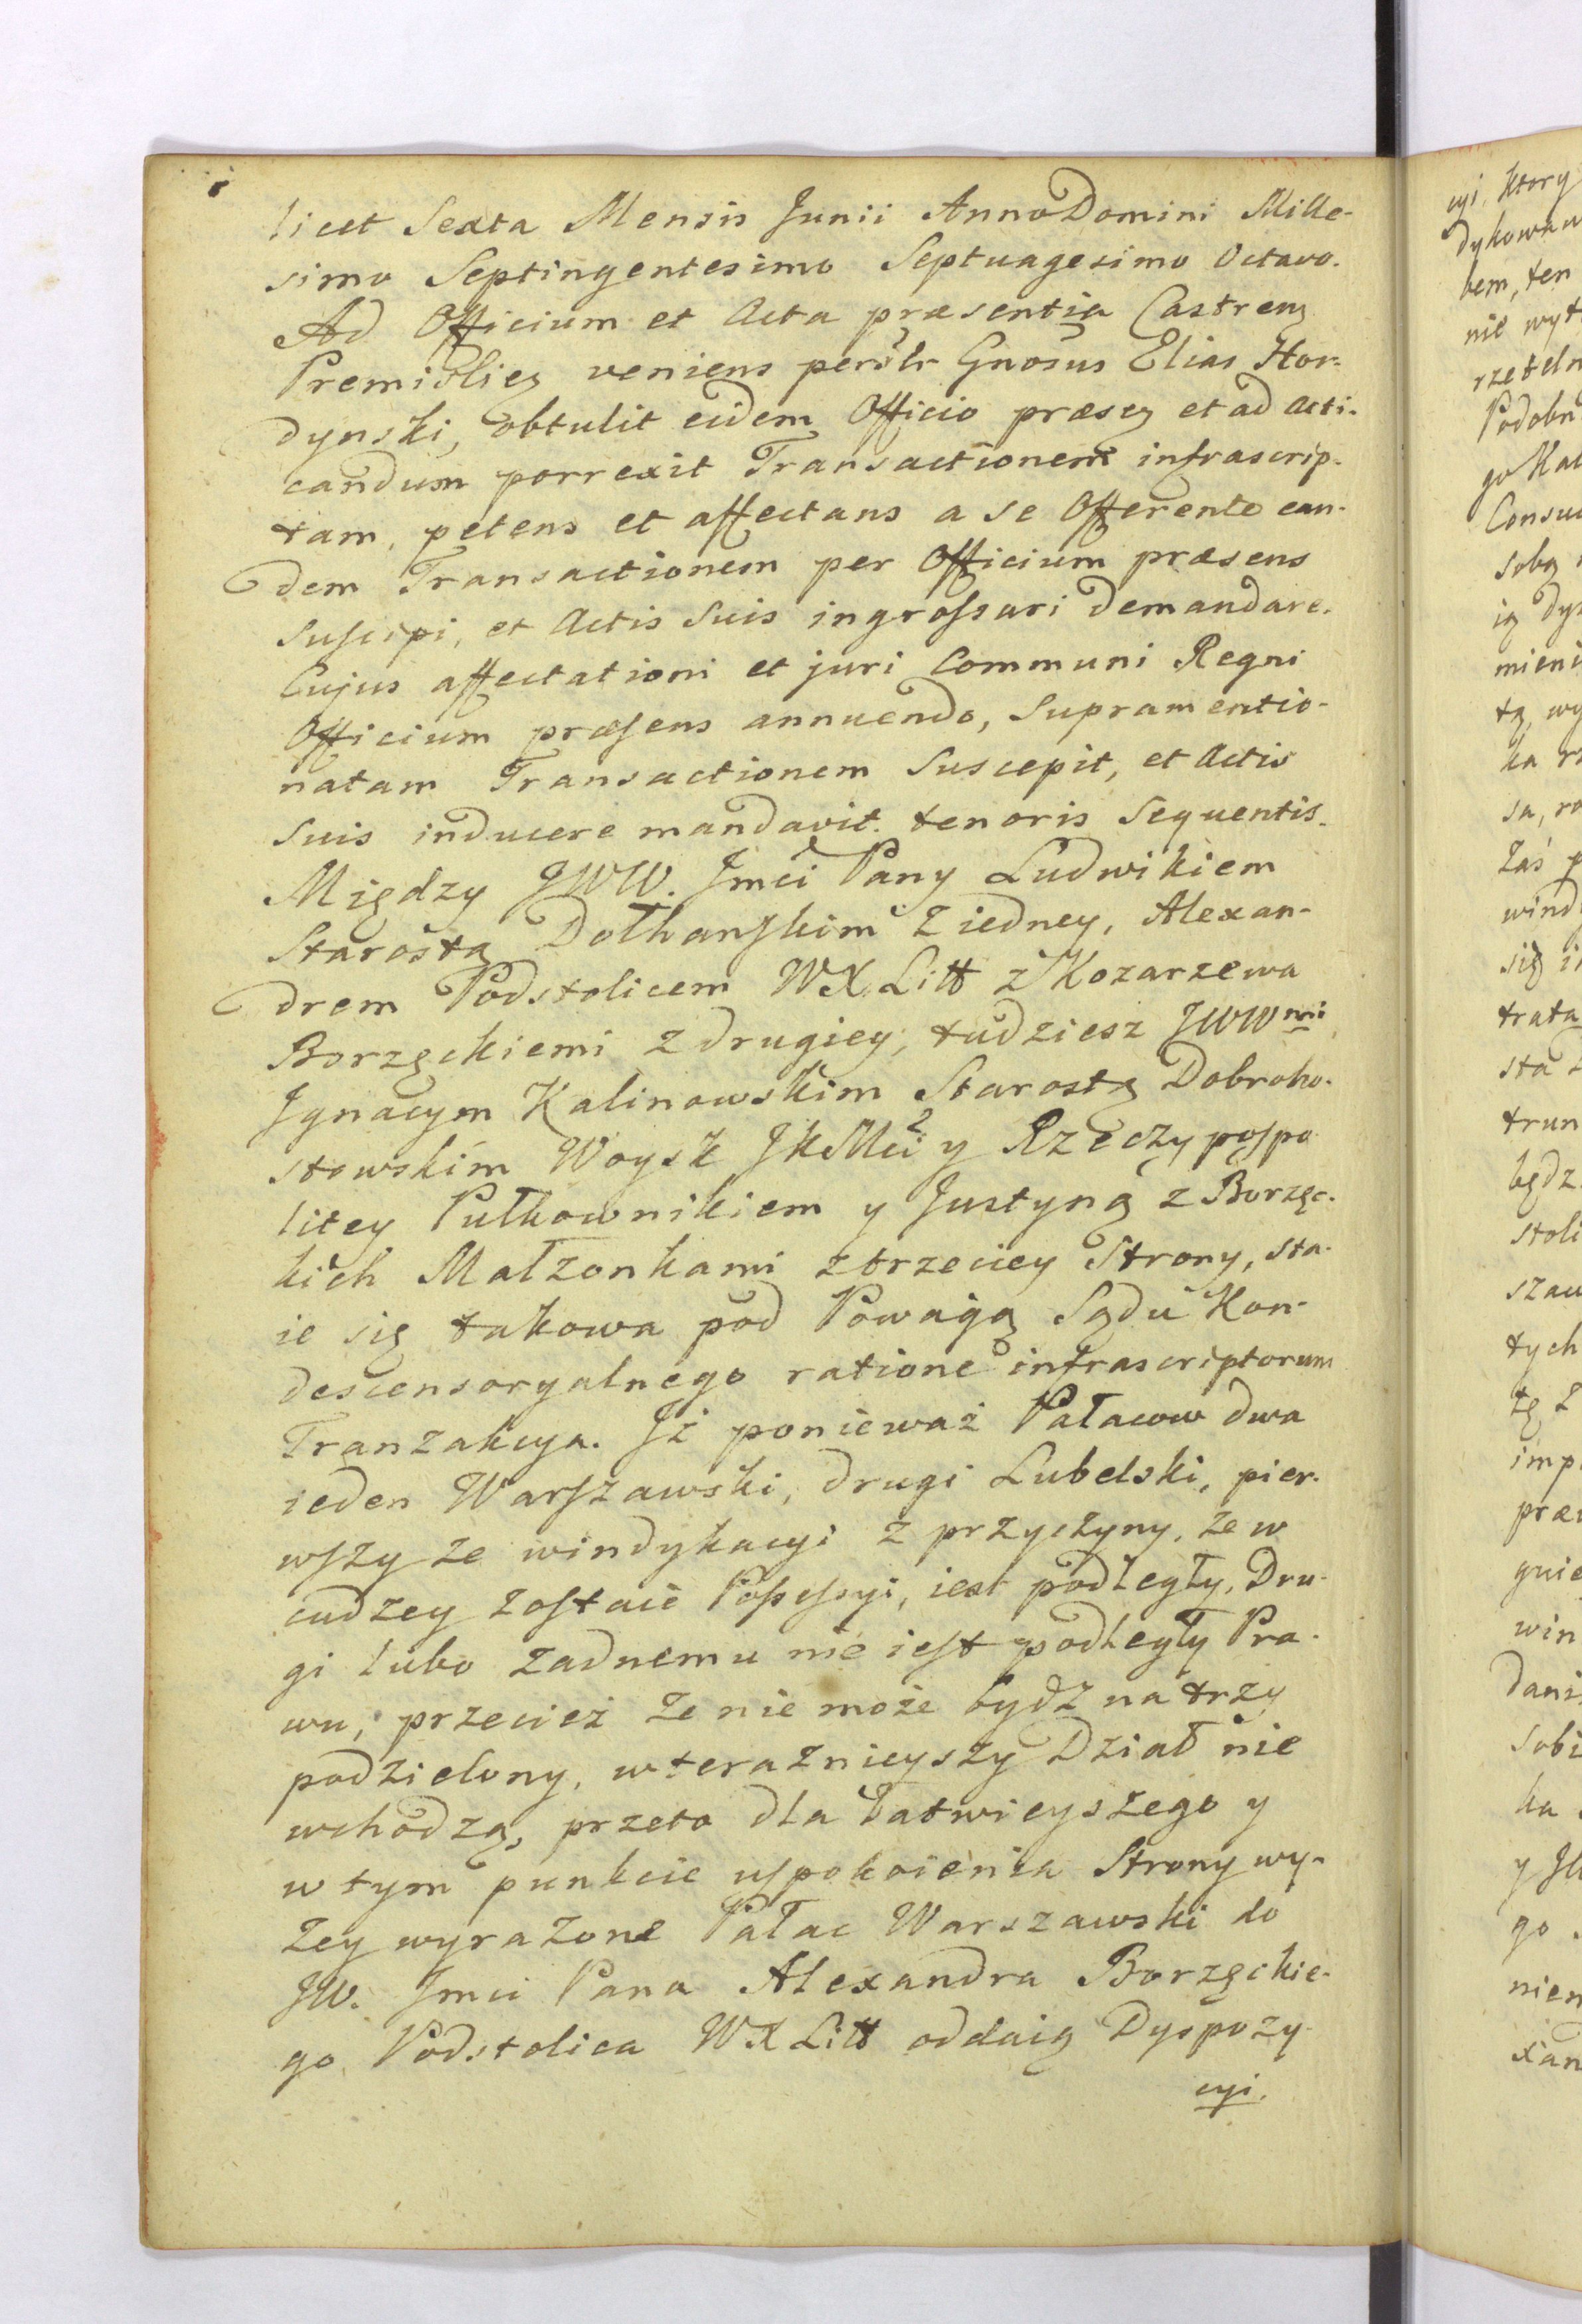 licet Sexta Mensis Junii Anno Domini Mille-
simo Septingentesimo Septuagesimo Octavo.
Ad Officium et Acta præsentia Castrenz
Premislienz veniens persltr Gnosus Elias Hor-
dynski, obtulit eidem Officio præsez et ad acti-
candum porrexit Transactionem infrascrip-
tam, petens et affectans a se Offerente ean-
dem Transactionem per Officium præsens
suscipi, et Actis suis ingrossari demandare.
Cujus affectationi et juri Communi Regni
Officium præsens annuendo, supramentio-
natam Transactionem suscepit, et Actis
suis inducere mandavit. tenoris sequentis.
Między JWW. Jmci Pany Ludwikiem
Starostą Dołhanskim z iedney, Alexan-
drem Podstolicem WX Litt z Kozarzewa
Borzęckiemi z drugiey, tudziesz JWWmi
Jgnacym Kalinowskim Starostą Dobroho-
stowskim Woysk JKMci y Rzeczypospo
litey Pułkownikiem y Justyną z Borzęc-
kich Małżonkami z trzeciey Strony, sta-
ie się takowa pod Powagą Sądu Kon-
descensoryalnego ratione infrascriptorum
Tranzakcya. Jż ponieważ Pałacow dwa
ieden Warszawski, drugi Lubelski, pier-
wszy ze windykacyi z przyczyny, że w
cudzey zostaie Possessyi, iest podległy, Dru-
gi lubo żadnemu nie iest podległy Pra-
wu, przecież że nie może bydź na trzy
podzielony, w teraznieyszy Dział nie
wchodzą, przeto dla łatwieyszego y
w tym punkcie uspokoienia Strony wy-
żey wyrażone Pałac Warszawski do
JW. Jmci Pana Alexandra Borzęckie-
go Podstolica WX Litt oddaią Dyspozy-
cyi.